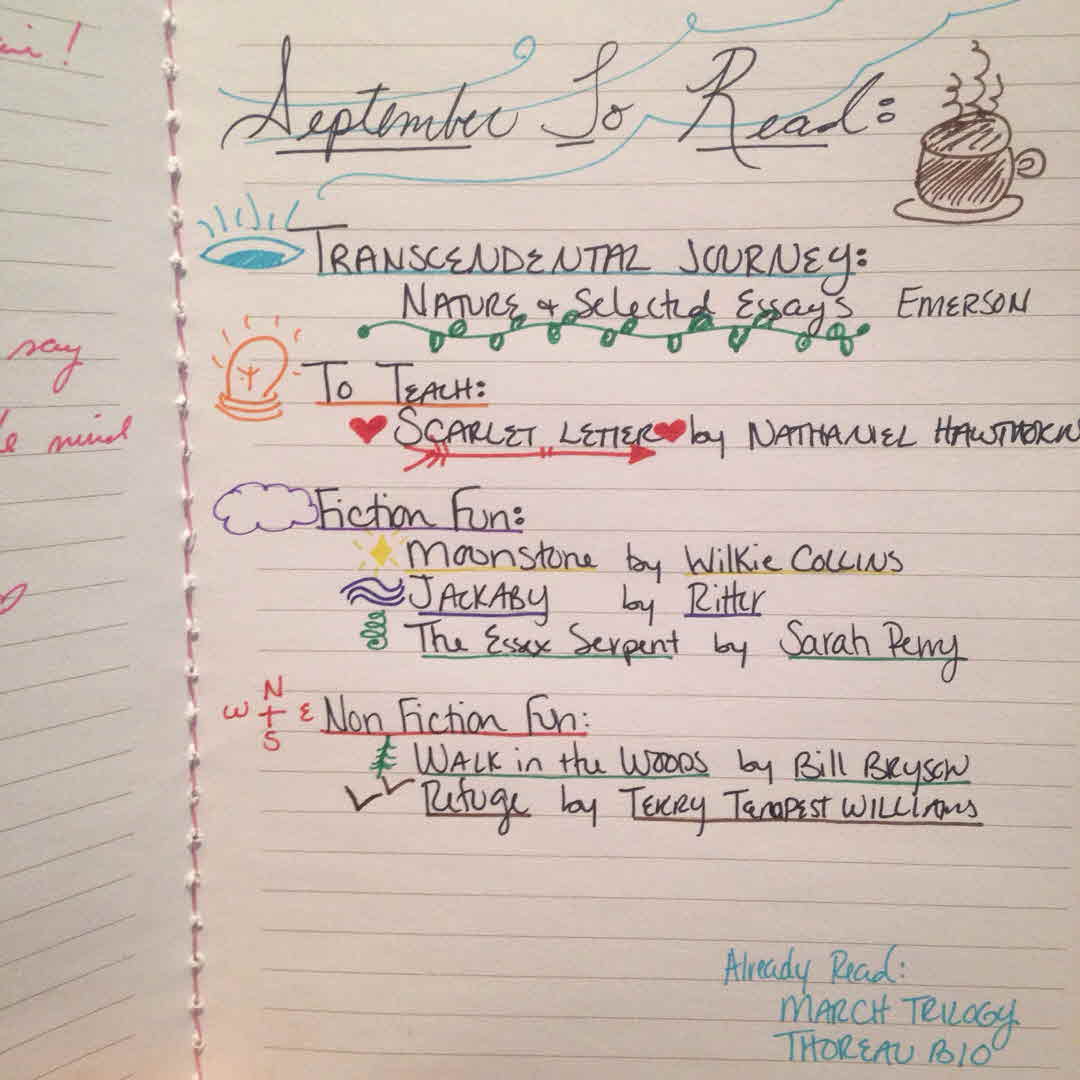 air!
say
mind
September To Read:
TRANSCENDENTAL JOURNEY:
NATURE & Selected Essays EMERSON
To TEACH:
SCARLET LETTER by NATHANIEL HAWTHORN
Fiction Fun:
Moonstone by Wilkie COLLINS
JACKABY by Ritter
The Essex Serpent by Sarah Perry
N
W E
S
Non Fiction Fun:
WALK in the WOODS by Bill BRYSON
Refuge by TERRY TEMPEST WILLIAMS
Already Read:
MARCH TRILOGY
THOREAU BIO